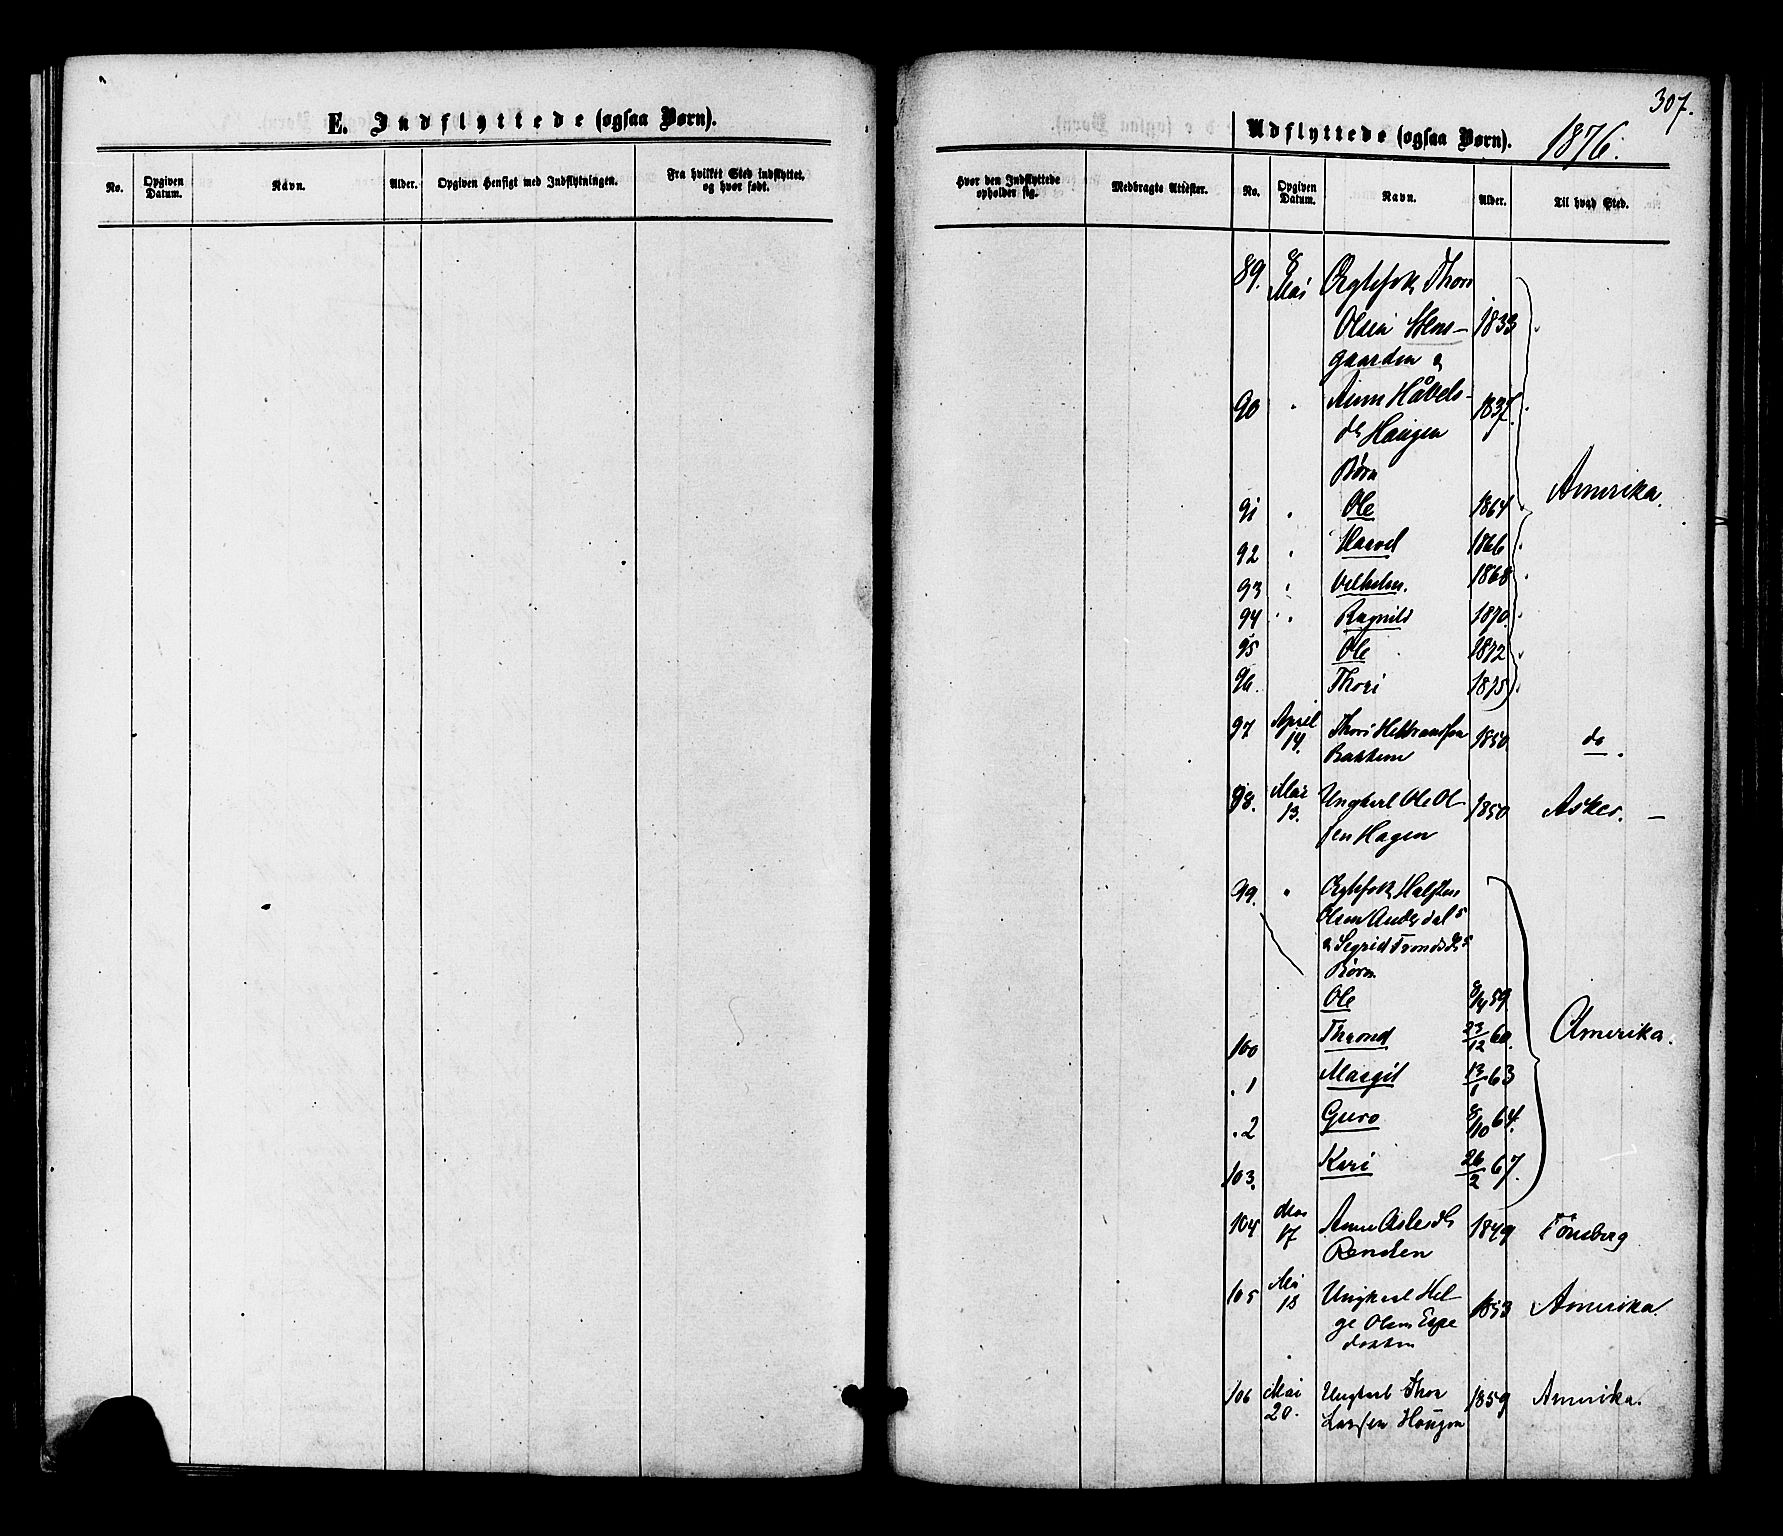 307.
E. Indflyttede (ogsaa Børn).
No.
Opgiven Datum.
Navn.
Alder.
Opgiven Hensigt med Indflytningen.
Fra hvilket Sted indflyttet, og hvor født.
Udflyttede (ogsaa Børn). 1876.
Hvor den Indflyttede opholder sig.
Medbragte Attester.
No.
Opgiven Datum.
Navn.
Alder.
Til hvad Sted.
89. 8 Mai Ægtefolk Thor
Olsen 1833
gaarden &
90 Anne Håvels-
dr Haugen 1837.
Børn
Amerika.
91 Ole 1864
92 Haavel 1866
93 Vilhelm. 1868
94 Ragnild 1870
95 Ole 1872
96. Thori 1875
97 April 14. Thori Helbrandsen 1850 do.
Bakken
98. Mai 13. Ungkarl Ole Ol- 1850 Asker. —
sen Hagen
99. Ægtefolk Halsten
Olsen
& Sigrid Tronds
Børn
Ole 59
100 Thrond 23/12 60. Amerika.
. 1 Margit 13/1 63
. 2 Guro 8/10 64.
103. Kari 26/2 67.
104 17 Anne Aslesdr 1849 Tönsberg
Renden
105 Mai 18 Ungkarl Hel- 1853 Amerika.
ge Olsen Espe
dokken
106 Mai 20. Ungkarl Thor 1859 Amerika.
Larsen Haugen